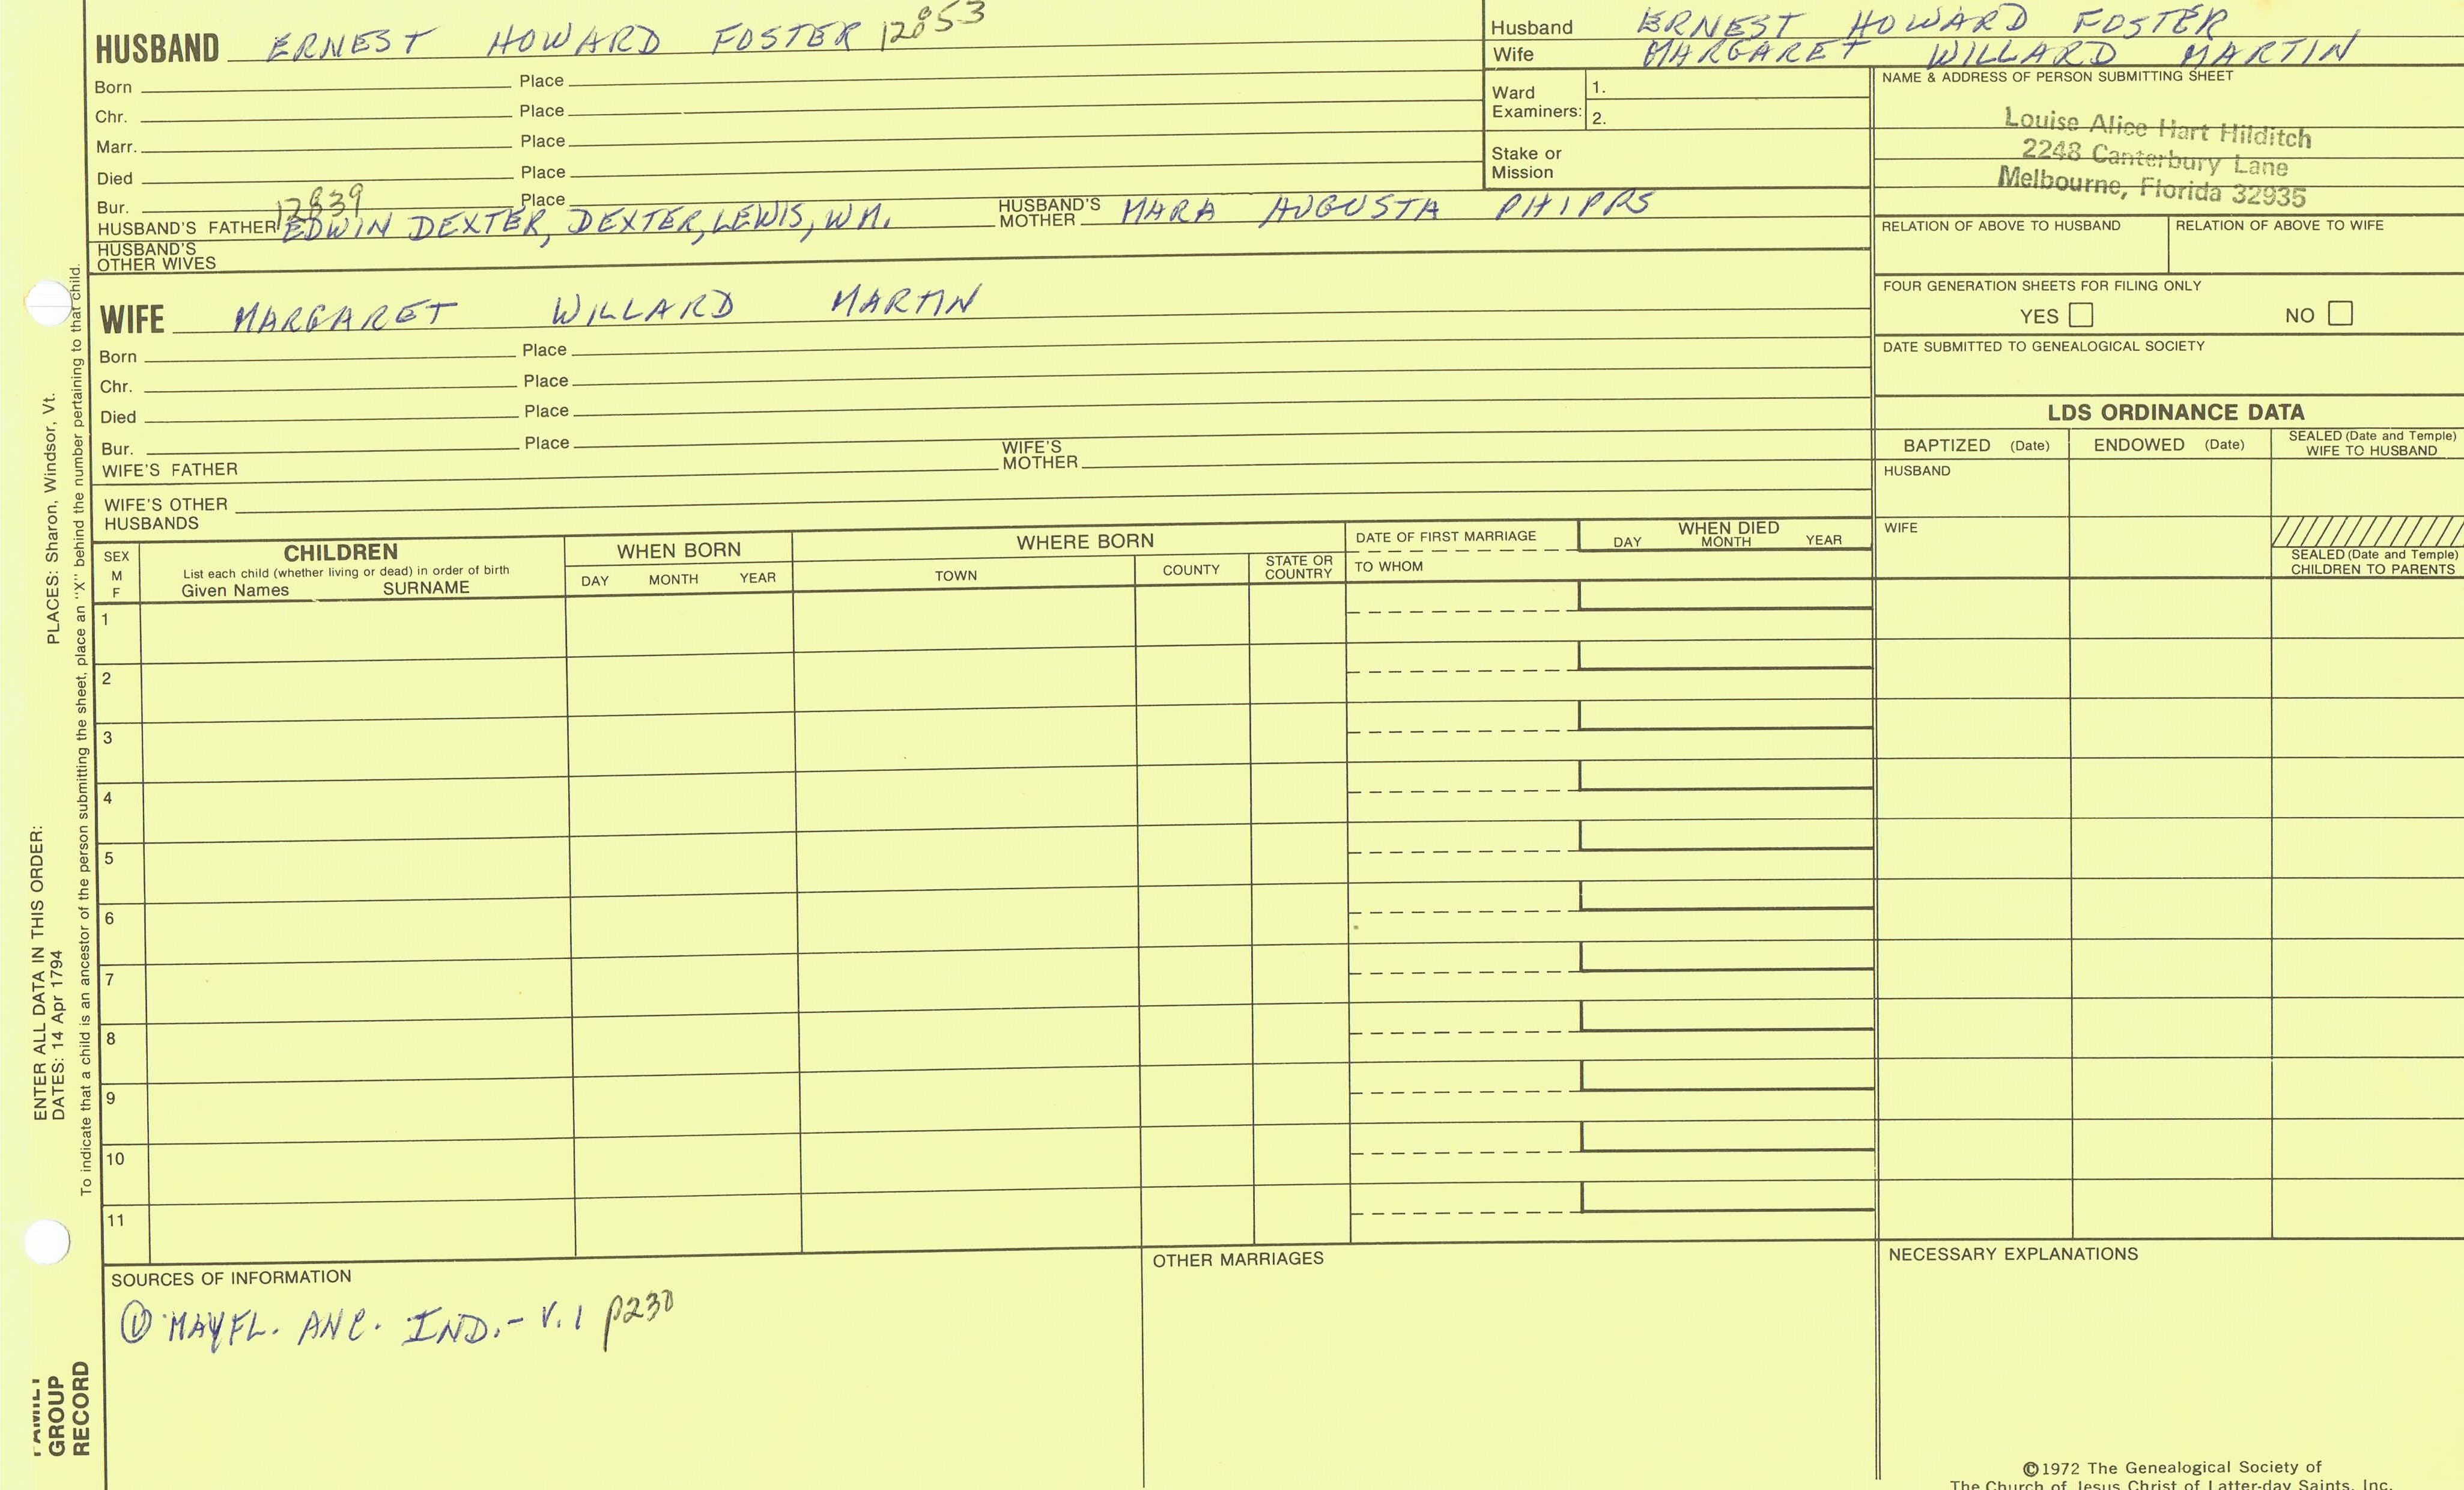 HUSBAND ERNEST HOWARD FOSTER 12853
Born Place
Chr. Place
Marr. Place
Died Place
Bur. Place
12839
HUSBAND'S FATHER EDWIN DEXTER, DEXTER, LEWIS, WM. HUSBAND'S MOTHER MARA AUGUSTA PHIPPS
HUSBAND'S OTHER WIVES
WIFE MARGARET WILLARD MARTIN
Born Place
Chr. Place
Died Place
Bur. Place
WIFE'S FATHER WIFE'S MOTHER
WIFE'S OTHER HUSBANDS
Husband ERNEST HOWARD FOSTER
Wife MARGARET WILLARD MARTIN
Ward Examiners: 1.
2.
Stake or Mission
NAME & ADDRESS OF PERSON SUBMITTING SHEET
Louise Alice Hart Hilditch
2248 Canterbury Lane
Melbourne, Florida 32935
RELATION OF ABOVE TO HUSBAND RELATION OF ABOVE TO WIFE
FOUR GENERATION SHEETS FOR FILING ONLY
YES NO
DATE SUBMITTED TO GENEALOGICAL SOCIETY
LDS ORDINANCE DATA
BAPTIZED (Date) ENDOWED (Date) SEALED (Date and Temple) WIFE TO HUSBAND
HUSBAND
WIFE
SEALED (Date and Temple) CHILDREN TO PARENTS
SEX M F
CHILDREN
List each child (whether living or dead) in order of birth
Given Names SURNAME
WHEN BORN
DAY MONTH YEAR
WHERE BORN
TOWN COUNTY STATE OR COUNTRY
DATE OF FIRST MARRIAGE
TO WHOM
WHEN DIED
DAY MONTH YEAR
1
2
3
4
5
6
7
8
9
10
11
SOURCES OF INFORMATION
① MAYFL. ANC. IND.- V.1 p230
OTHER MARRIAGES
NECESSARY EXPLANATIONS
©1972 The Genealogical Society of
The Church of Jesus Christ of Latter-day Saints, Inc.
ENTER ALL DATA IN THIS ORDER:
DATES: 14 Apr 1794 PLACES: Sharon, Windsor, Vt.
To indicate that a child is an ancestor of the person submitting the sheet, place an "X" behind the number pertaining to that child.
FAMILY
GROUP
RECORD